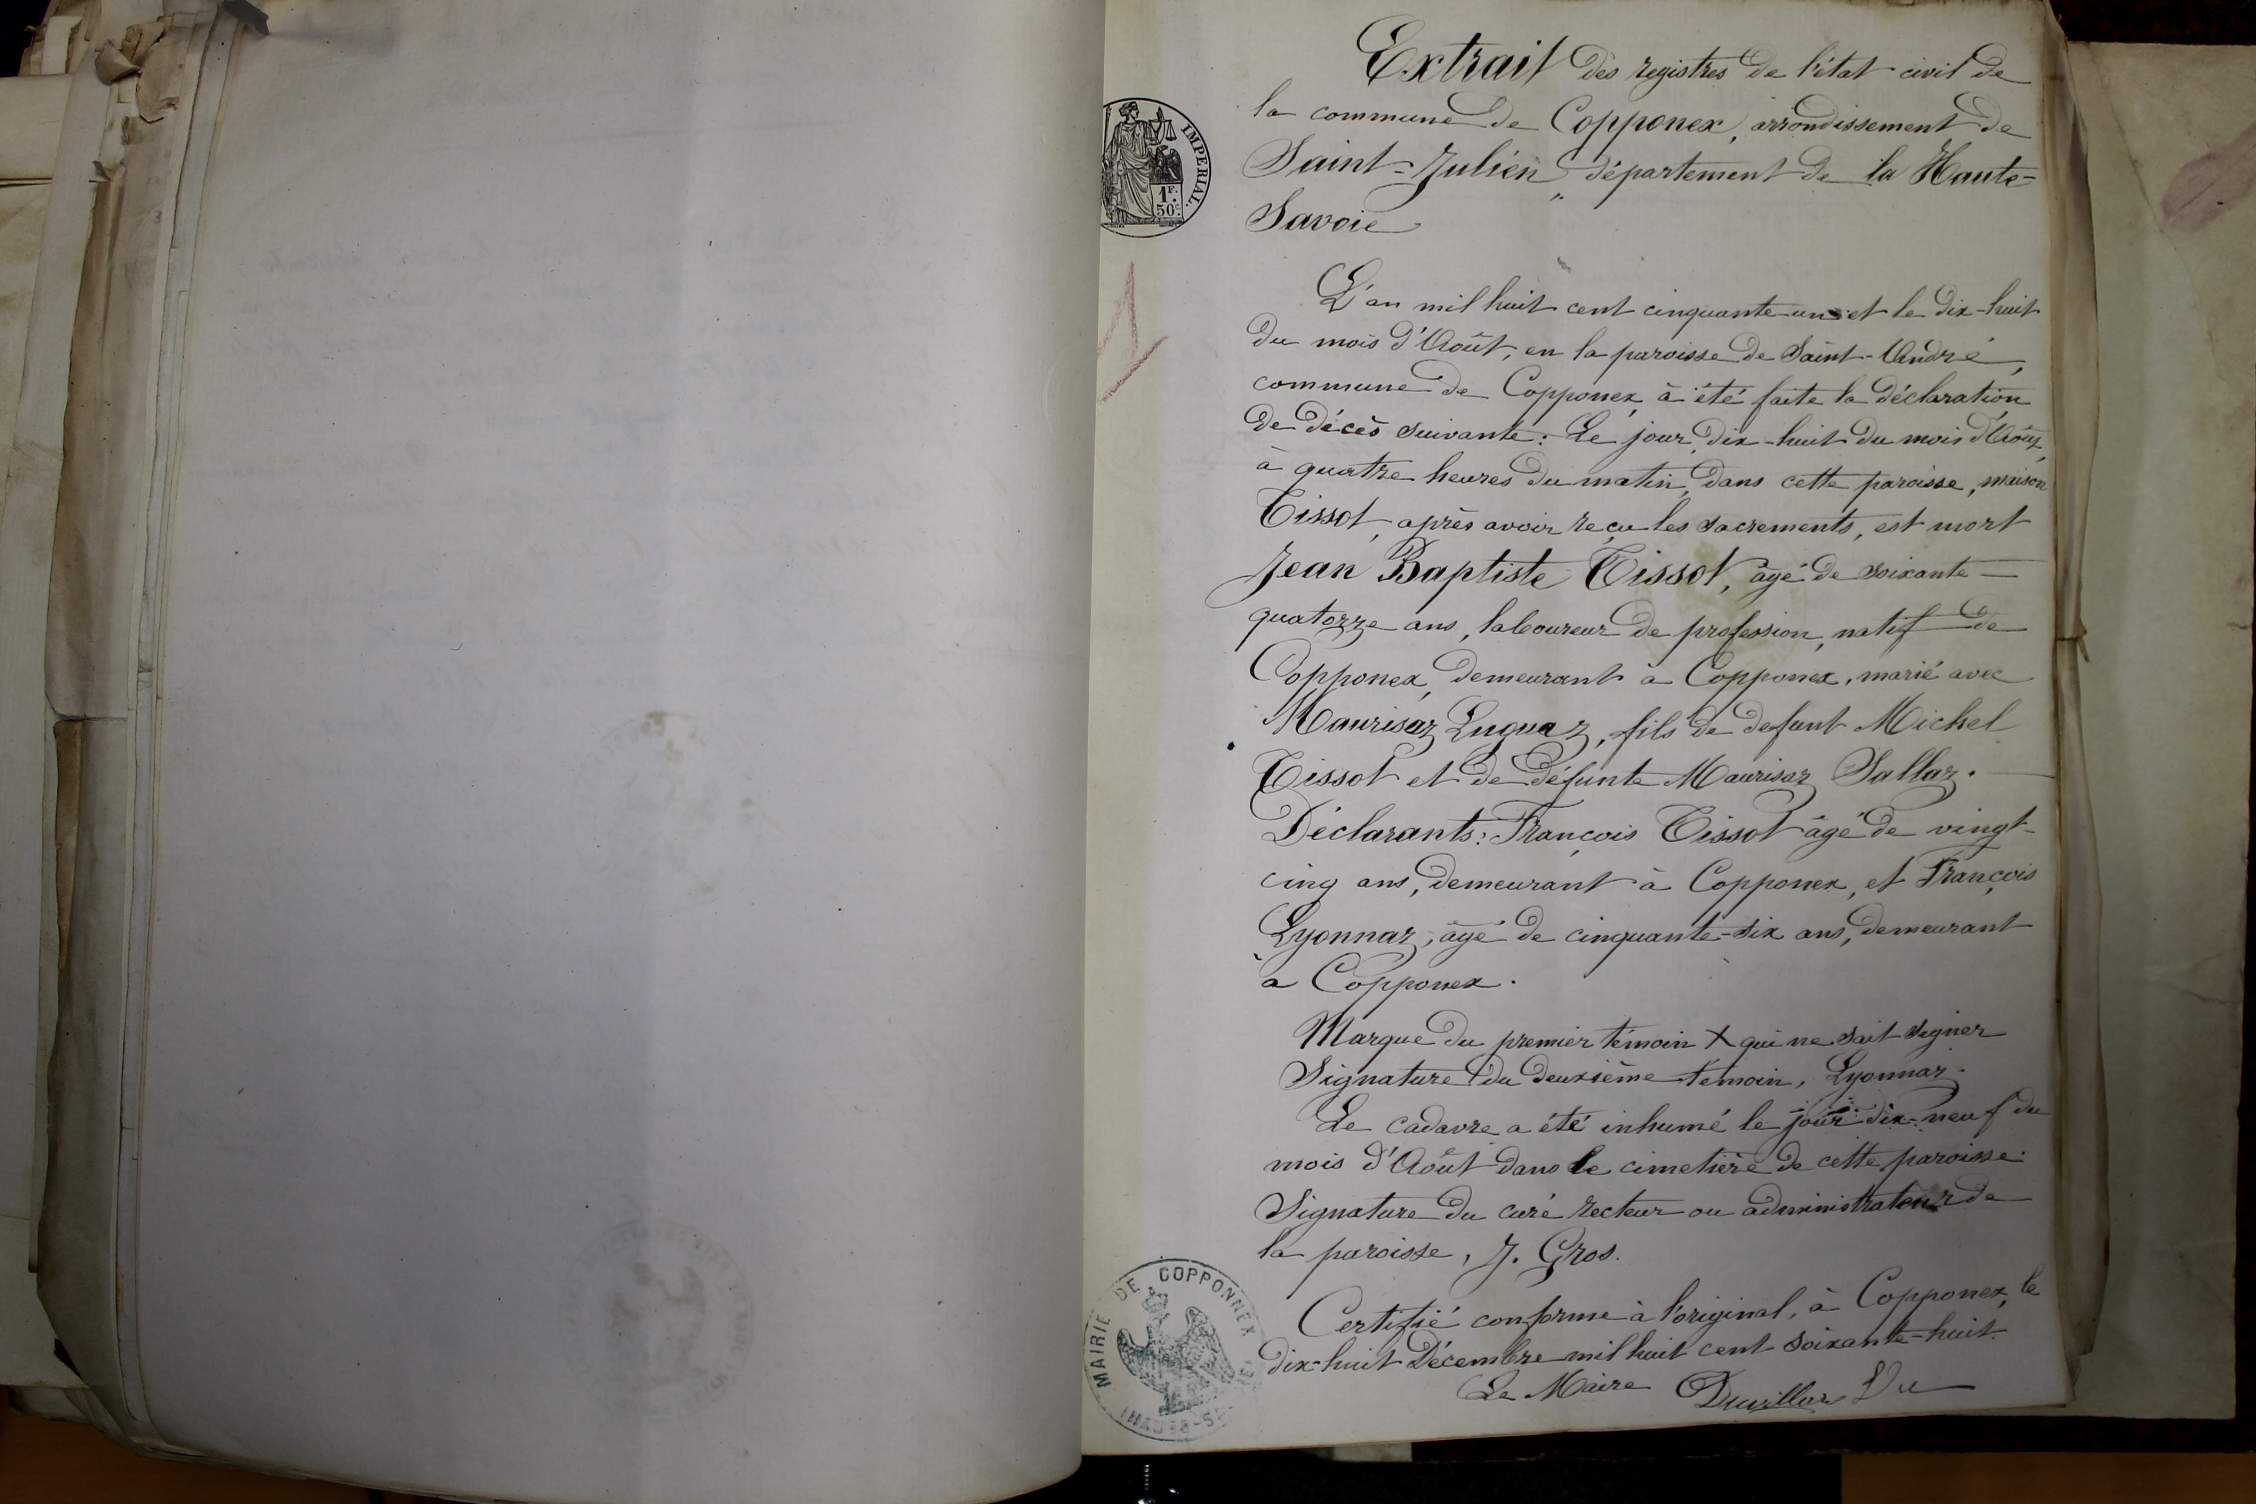 Extrait des registres de l'état civil de
la commune de Copponex, arrondissement de
Saint-Julien, département de la Haute-
Savoie
IMPERIAL.
1F.
50c.
L'an mil huit cent cinquante un et le dix-huit
du mois d'Août, en la paroisse de Saint-André,
commune de Copponex, à été faite la déclaration
de décès suivante: Le jour dix-huit du mois d'Août,
à quatre heures du matin, dans cette paroisse, maison
Tissot, après avoir reçu les sacrements, est mort
Jean Baptiste Tissot, âgé de soixante-
quatorze ans, laboureur de profession, natif de
Copponex, demeurant à Copponex, marié avec
Maurisaz Luguaz, fils de defunt Michel
Tissot et de défunte Maurisaz Sallaz.
Déclarants: François Tissot âgé de vingt-
cinq ans, demeurant à Copponex, et François
Lyonnaz, âgé de cinquante-six ans, demeurant
à Copponex.
Marque du premier témoin X qui ne sait signer
Signature du deuxième témoin, Lyonnaz.
Le cadavre a été inhumé le jour dix-neuf du
mois d'Août dans le cimetière de cette paroisse.
Signature du curé recteur ou administrateur de
la paroisse, J. Gros.
Certifié conforme à l'original, à Copponex, le
dix-huit Décembre mil huit cent soixante-huit.
Le Maire
MAIRIE DE COPPONNEX